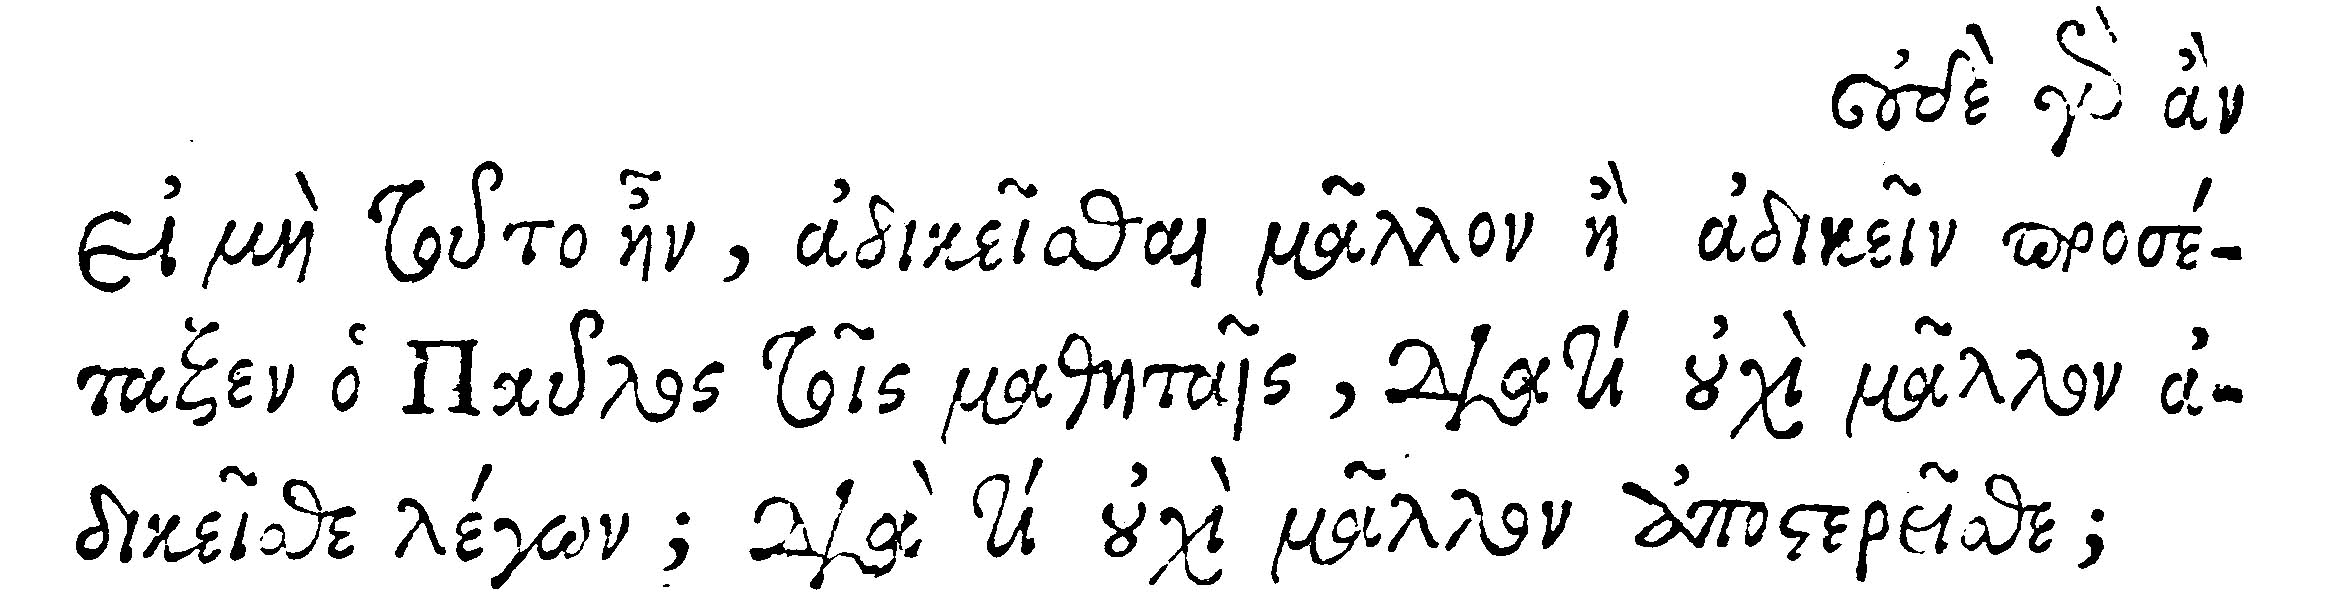 οὐδὲ γὸ ἂν
εἰ μὴ τοῦτο ἦν, ἀδικεῖσθαι μᾶλλον ἢ ἀδικεῖν προσέ-
ταξεν ὁ Παῦλος τοῖς μαθηταῖς, Διατί οὐχὶ μᾶλλον ἀ-
δικεῖσθε λέγων; Διὰ τί οὐχὶ μᾶλλον ἀποστερεῖσθε;